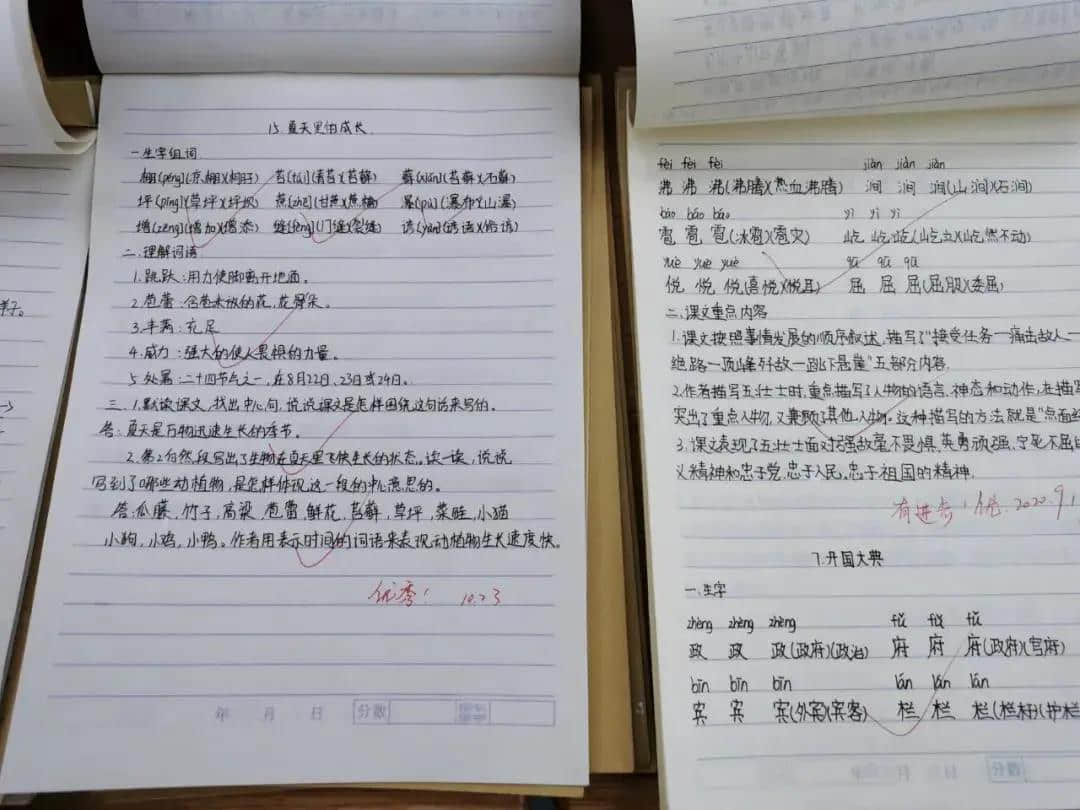 15.夏天里的成长
一.生字组词
棚(péng)(凉棚)( 苔(tái)(青苔)(苔藓) 藓(xiǎn)(苔藓)(石藓)
坪(píng)(草坪)(坪坝) 蔗(zhe)(甘蔗)(蔗糖) 瀑(pù)(瀑布)(山瀑)
增(zēng)(增加)(增添) 缝(fèng)(门缝)(裂缝) 谚(yàn)(谚语)(俗谚)
二.理解词语
1.跳跃:用力使脚离开地面。
2.苞蕾:含苞未放的花,花骨朵。
3.丰满:充足
4.威力:强大的使人畏惧的力量。
5.处暑:二十四节气之一,在8月22日、23日或24日。
三.1.默读课文,找出中心句,说说课文是怎样围绕这句话来写的。
答:夏天是万物迅速生长的季节。
2.第2自然段写出了生物在夏天里飞快生长的状态。读一读,说说
写到了哪些动植物,是怎样体现这一段的中心意思的。
答:瓜藤,竹子,高粱,苞蕾,鲜花,苔藓,草坪,菜畦,小猫
小狗,小鸡,小鸭。作者用表示时间的词语来表现动植物生长速度快。
优秀! 10.23
年 月 日 分数
fèi fèi fèi jiàn jiàn jiàn
沸 沸 沸(沸腾)(热血沸腾) 涧 涧 涧(山涧)(石涧)
báo báo báo yì yì yì
雹 雹 雹(冰雹)(雹灾) 屹 屹 屹(屹立)(屹然不动)
yuè yuè yuè qū qū qū
悦 悦 悦(喜悦)(悦耳) 屈 屈 屈(屈服)(委屈)
二.课文重点内容
1.课文按照事情发展的顺序叙述,描写了“接受任务一痛击敌人一
绝路一顶峰歼敌一跳下悬崖”五部分内容.
2.作者描写五壮士时,重点描写了人物的语言、神态和动作,在描写
突出了重点人物,又兼顾了其他人物。这种描写的方法就是“点面结
3.课文表现了五壮士面对强敌毫不畏惧、英勇顽强、宁死不屈的
义精神和忠于党、忠于人民、忠于祖国的精神.
有进步!优 2020.9.1
7.开国大典
一.生字
zhèng zhèng zhèng fǔ fǔ fǔ
政 政 政(政府)(政治) 府 府 府(政府)(官府)
bīn bīn bīn lán lán lán
宾 宾 宾(外宾)(宾客) 栏 栏 栏(栏杆)(护栏
月 日 分数